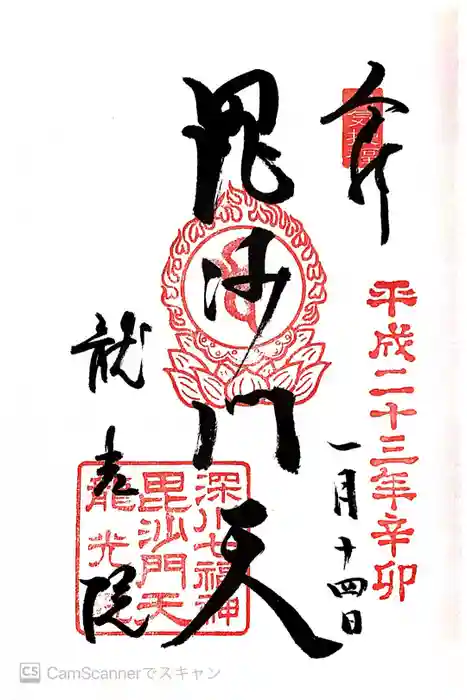 奉拝
平成二十三年辛卯
一月十四日
毘沙門天
深川七福神
毘沙門天
龍光院
龍光院
CS CamScannerでスキャン